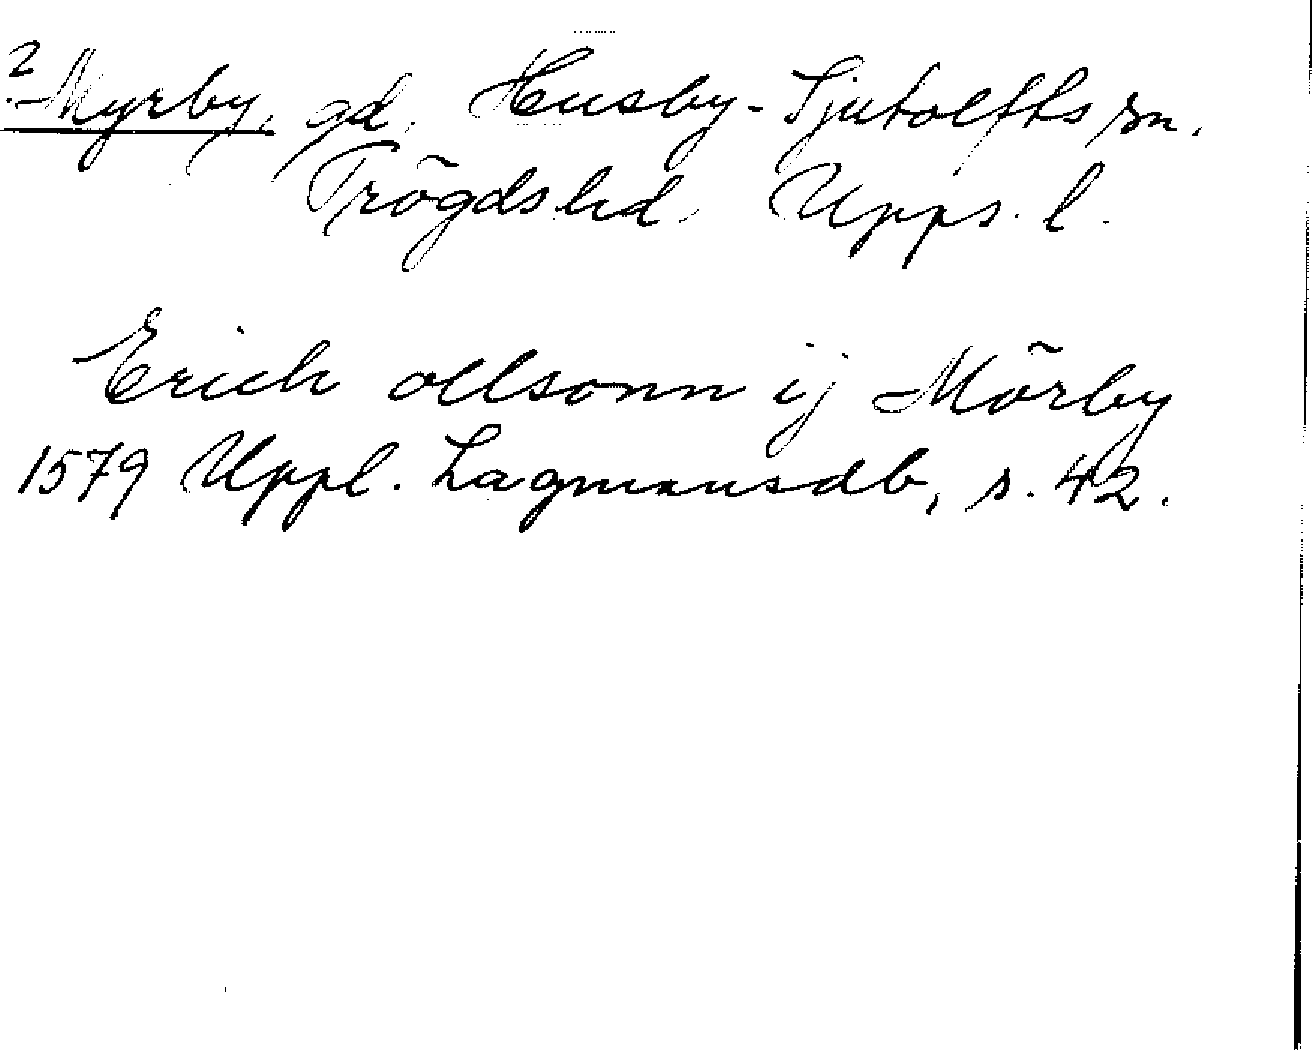 ? Myrby, gd, Husby-Sjutolfts sn.
Trögds hd, Upps. l.
Erich ollsonn ij Mörby
1579 Uppl. Lagmansdb, s. 42.